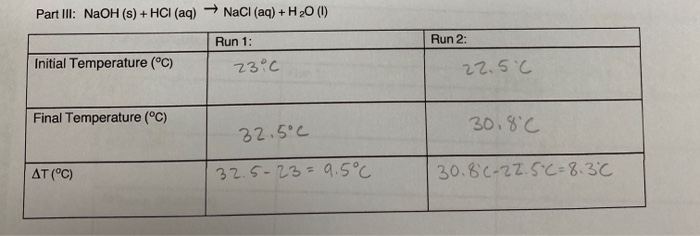 Part III: NaOH (s) + HCl (aq) → NaCl (aq) + H₂O (l)
Run 1: Run 2:
Initial Temperature (°C) 23°C 22.5°C
Final Temperature (°C) 32.5°C 30.8°C
ΔT (°C) 32.5-23 = 9.5°C 30.8°C-22.5°C=8.3°C